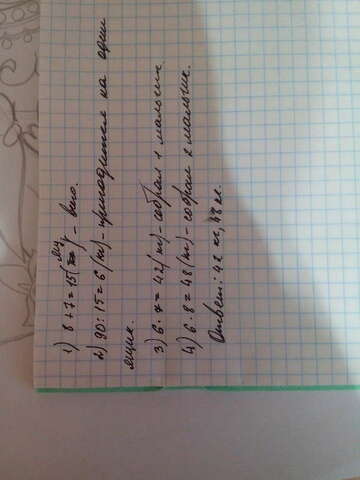 1) 8+7=15(ящ) - всего.
2) 90:15=6 (кг) - приходится на один
ящик.
3) 6·7=42(кг) - собрал 1 мальчик
4) 6·8=48(кг) - собрал 2 мальчик.
Ответ: 42 кг, 48 кг.